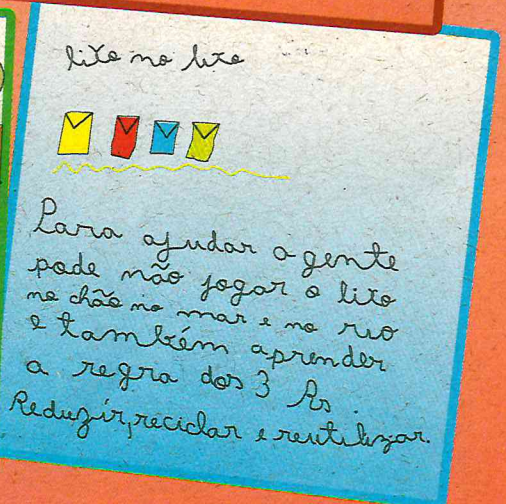 lixo no lixo
Para ajudar a gente
pode não jogar o lixo
no chão no mar e no rio
e também aprender
a regra dos 3 Rs.
Reduzir, reciclar e reutilizar.